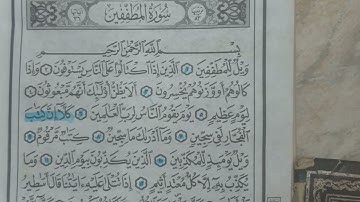 سُورَةُ الْمُطَفِّفِينَ
بِسْمِ اللَّهِ الرَّحْمَٰنِ الرَّحِيمِ
وَيْلٌ لِّلْمُطَفِّفِينَ ١ الَّذِينَ إِذَا اكْتَالُوا عَلَى النَّاسِ يَسْتَوْفُونَ ٢ وَإِذَا
كَالُوهُمْ أَو وَّزَنُوهُمْ يُخْسِرُونَ ٣ أَلَا يَظُنُّ أُولَٰئِكَ أَنَّهُم مَّبْعُوثُونَ ٤
لِيَوْمٍ عَظِيمٍ ٥ يَوْمَ يَقُومُ النَّاسُ لِرَبِّ الْعَالَمِينَ ٦ كَلَّا إِنَّ كِتَابَ
الْفُجَّارِ لَفِي سِجِّينٍ ٧ وَمَا أَدْرَاكَ مَا سِجِّينٌ ٨ كِتَابٌ مَّرْقُومٌ ٩
وَيْلٌ يَوْمَئِذٍ لِّلْمُكَذِّبِينَ ١٠ الَّذِينَ يُكَذِّبُونَ بِيَوْمِ الدِّينِ ١١ وَمَا
يُكَذِّبُ بِهِ إِلَّا كُلُّ مُعْتَدٍ أَثِيمٍ ١٢ إِذَا تُتْلَىٰ عَلَيْهِ آيَاتُنَا قَالَ أَسَاطِيرُ